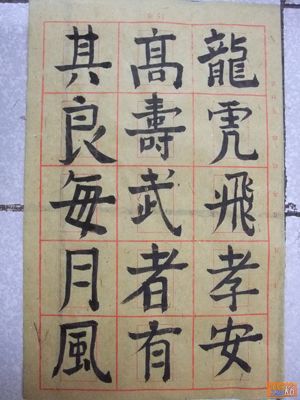 龍虎飛孝安
高壽武者有
其良每月風